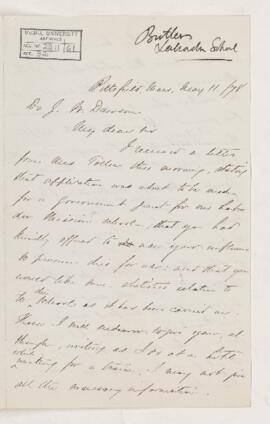 Butlers
Labrador School
McGILL UNIVERSITY
ARCHIVES
Pittsfield, Mass, May 11/78
Dr J. W. Dawson
My dear Sir
I received a letter
from Miss this morning, stating
that application was about to be made
for a government grant for our Labra
dor Mission school, that you had
kindly offered to use your influence
to procure this for us: and that you
would like some statistics relative to
the schools as it has been carried on.
These I will endeavor to give you, al
though, writing as I do at a late
while waiting for a train, I may not give
all the necessary information.